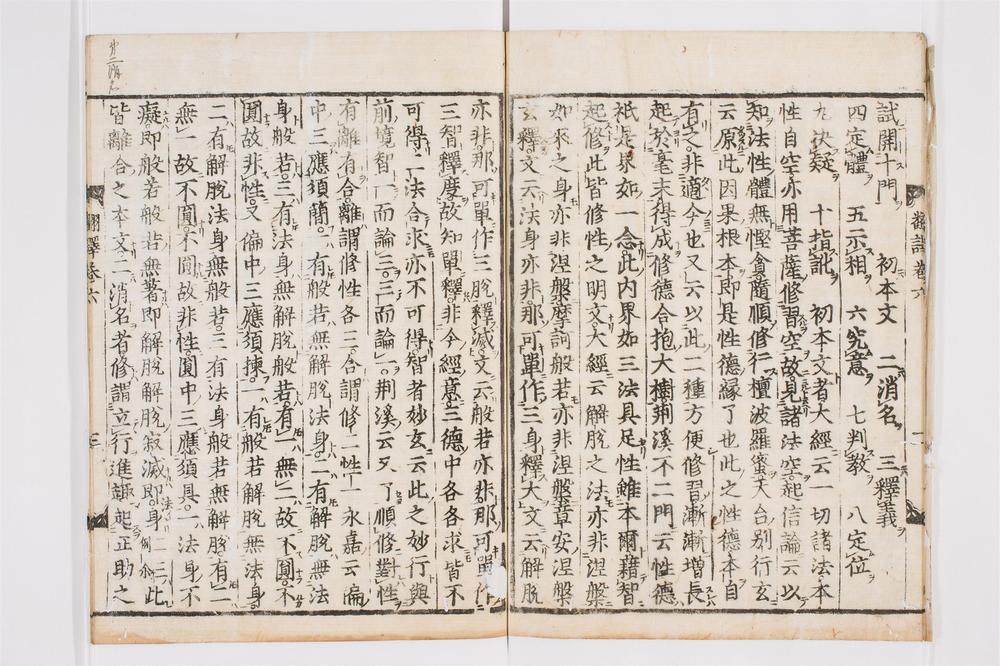 試開十門 初本文 二消名 三釋義
四定體 五示相 六究意 七判教 八定位
九決疑 十指訛 初本文者大經云一切諸法本
性自空亦用菩薩修習空故見諸法空起信論云以
知法性體無慳貪隨順修行檀波羅蜜天台別行玄
云原此因果根本即是性德緣了也此之性德本自
有之非適今也又云以此二種方便修習漸漸增長
起於毫末得成修德合抱大樹荊溪不二門云性德
祇是界如一念此內界如三法具足性雖本爾藉智
起修此皆修性之明文大經云解脫之法亦非涅槃
如來之身亦非涅槃摩訶般若亦非涅槃章安涅槃
玄釋文云法身亦非那可單作三身釋大文云解脫
亦非那可單作三脫釋滅文云般若亦非那可單作
三智釋度故知單釋非今經意三德中各各求皆不
可得二法合求亦不可得智者妙玄云此之妙行與
前境智一而論三三而論一荊溪云又了順修對性
有離有合離謂修性各三合謂修二性一永嘉云偏
中三應須簡一有般若無解脫法身二有解脫無法
身般若三有法身無解脫般若有一無二故不圓不
圓故非性又偏中三應須揀一有般若解脫無法身
二有解脫法身無般若三有法身般若無解脫有二
無一故不圓不圓故非性圓中三應須具一法身不
癡即般若般若無著即解脫解脫寂滅即法身二三例此
皆離合之本文二消名者修謂立行進趣起正助之
翻譯卷六
三